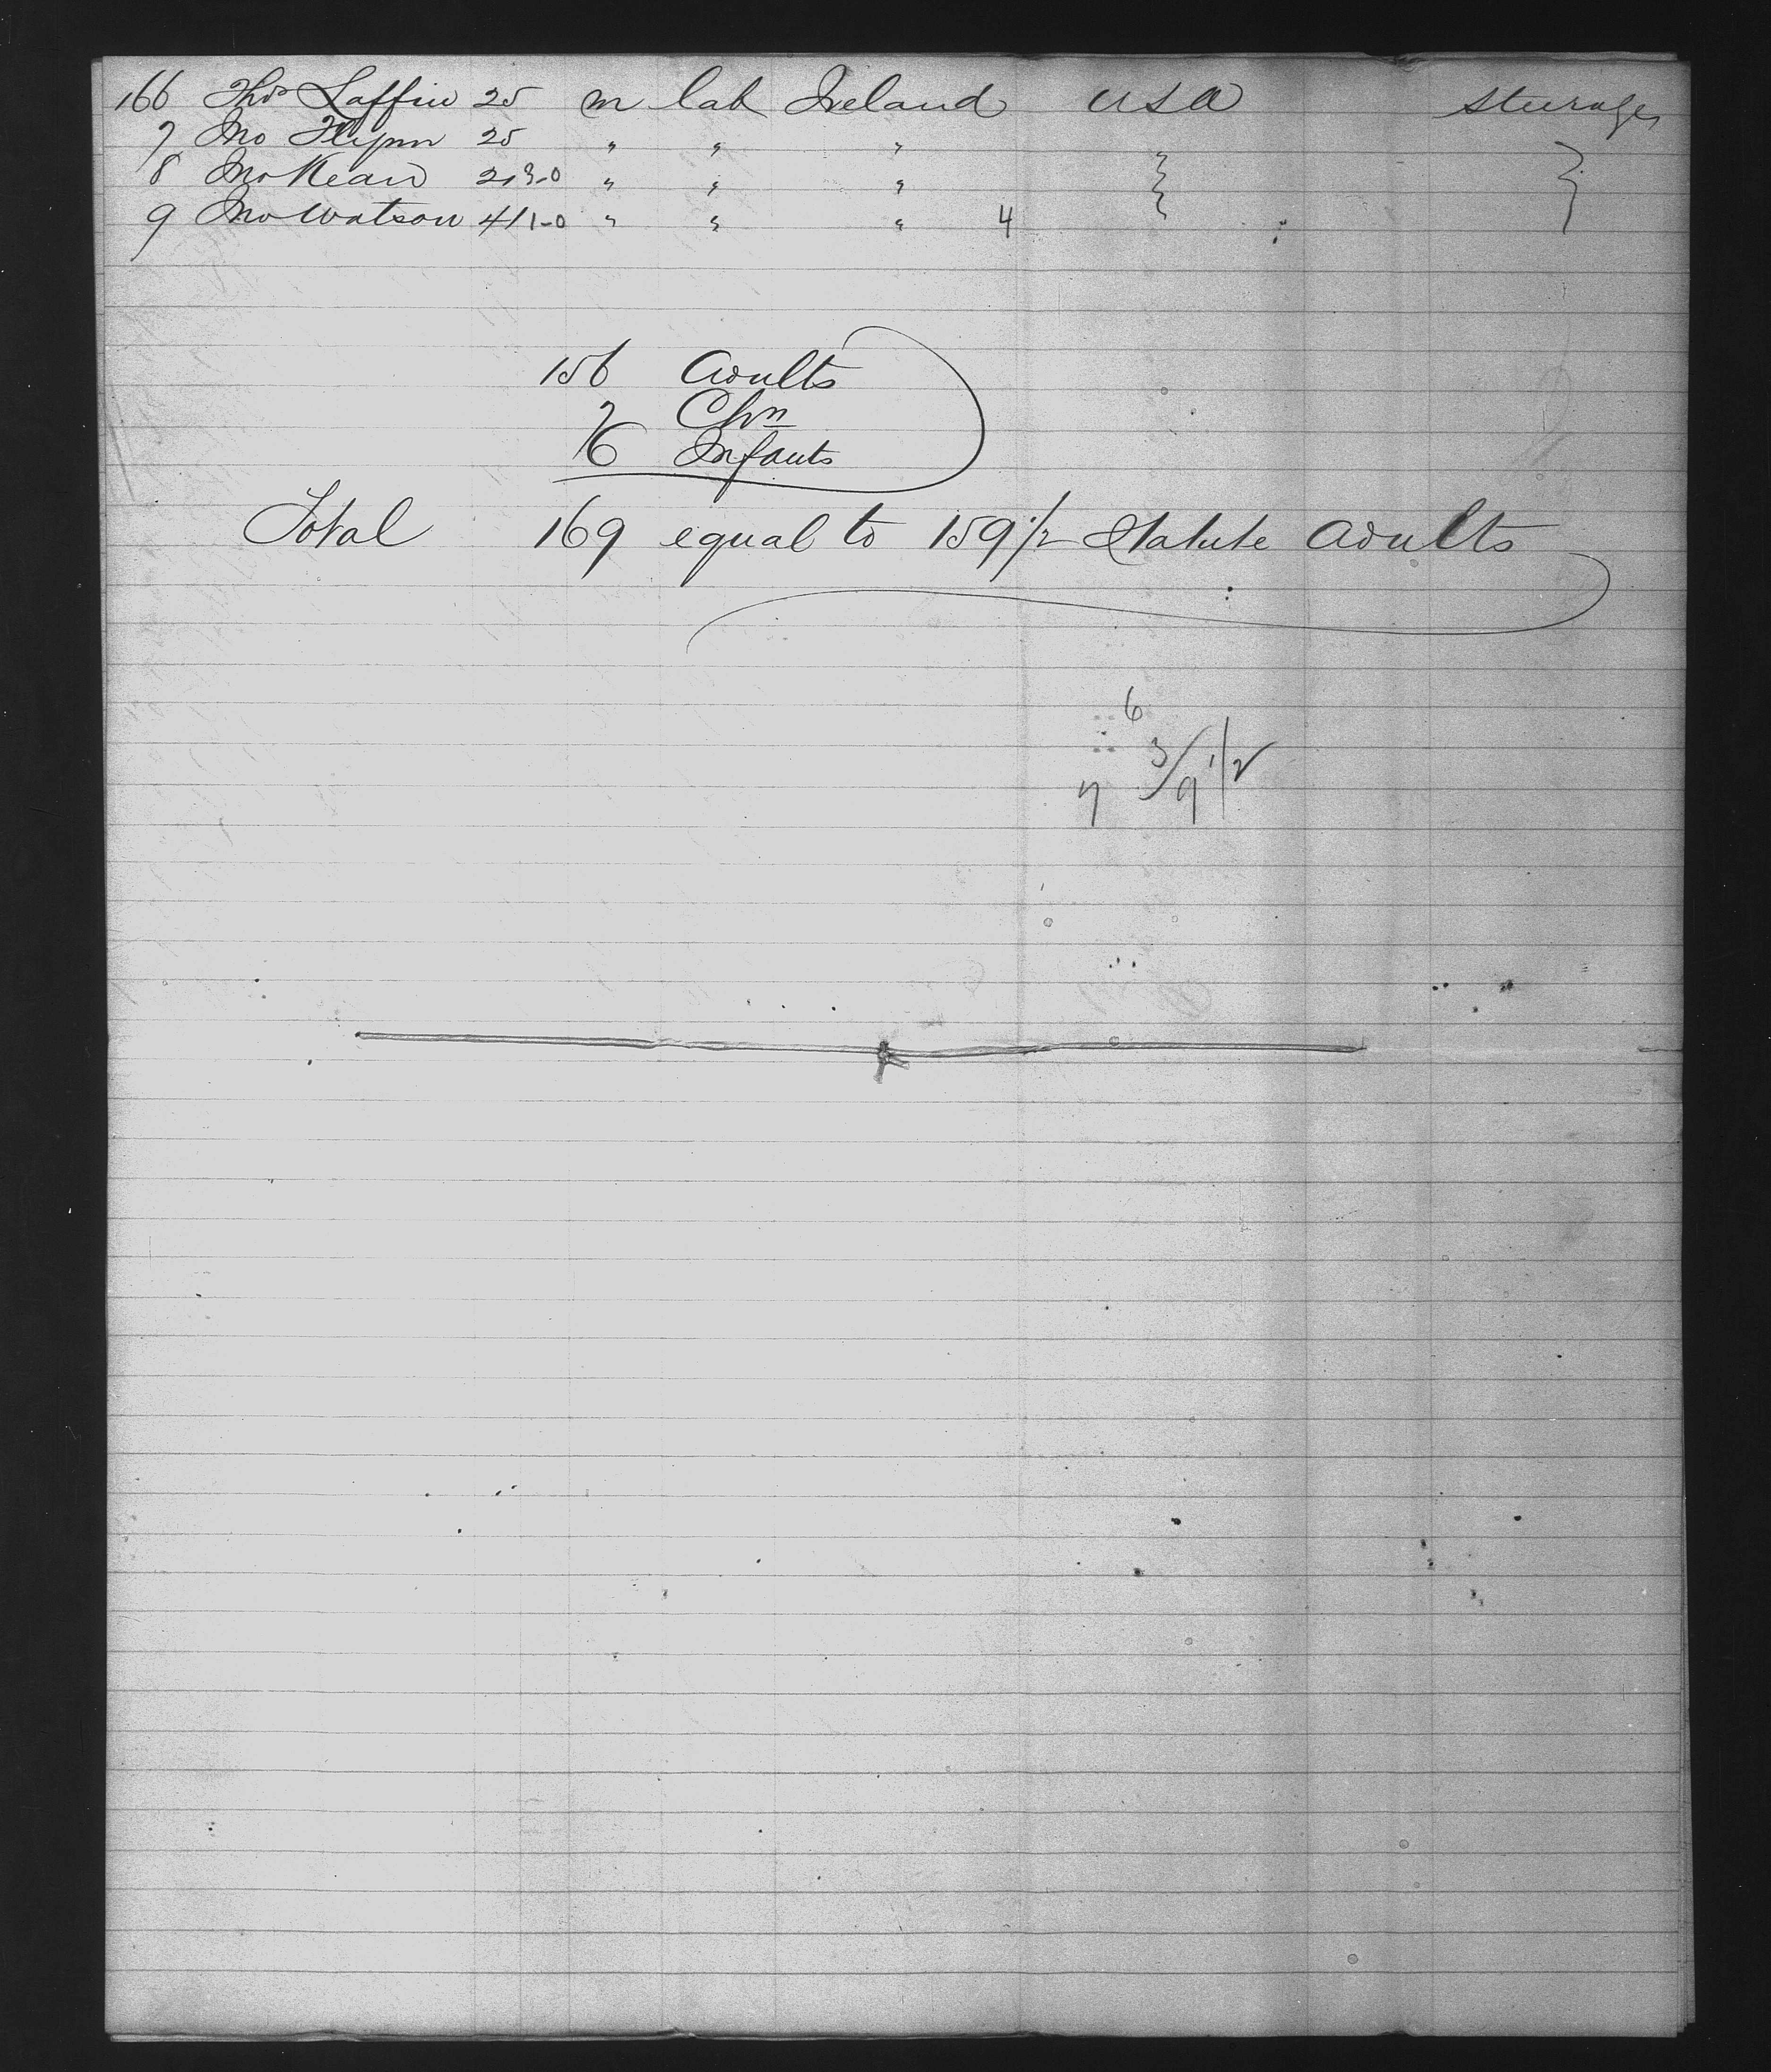 166 Thos Laffin 25 m lab Ireland USA Steerage
7 Jno Flynn 25 " " "
8 Jno Kean 21 3-0 " " "
9 Jno Watson 41 1-0 " " " 4
156 Adults
7 Chn
6 Infants
Total 169 equal to 159 1/2 Statute Adults
6
3/9 1/2
7